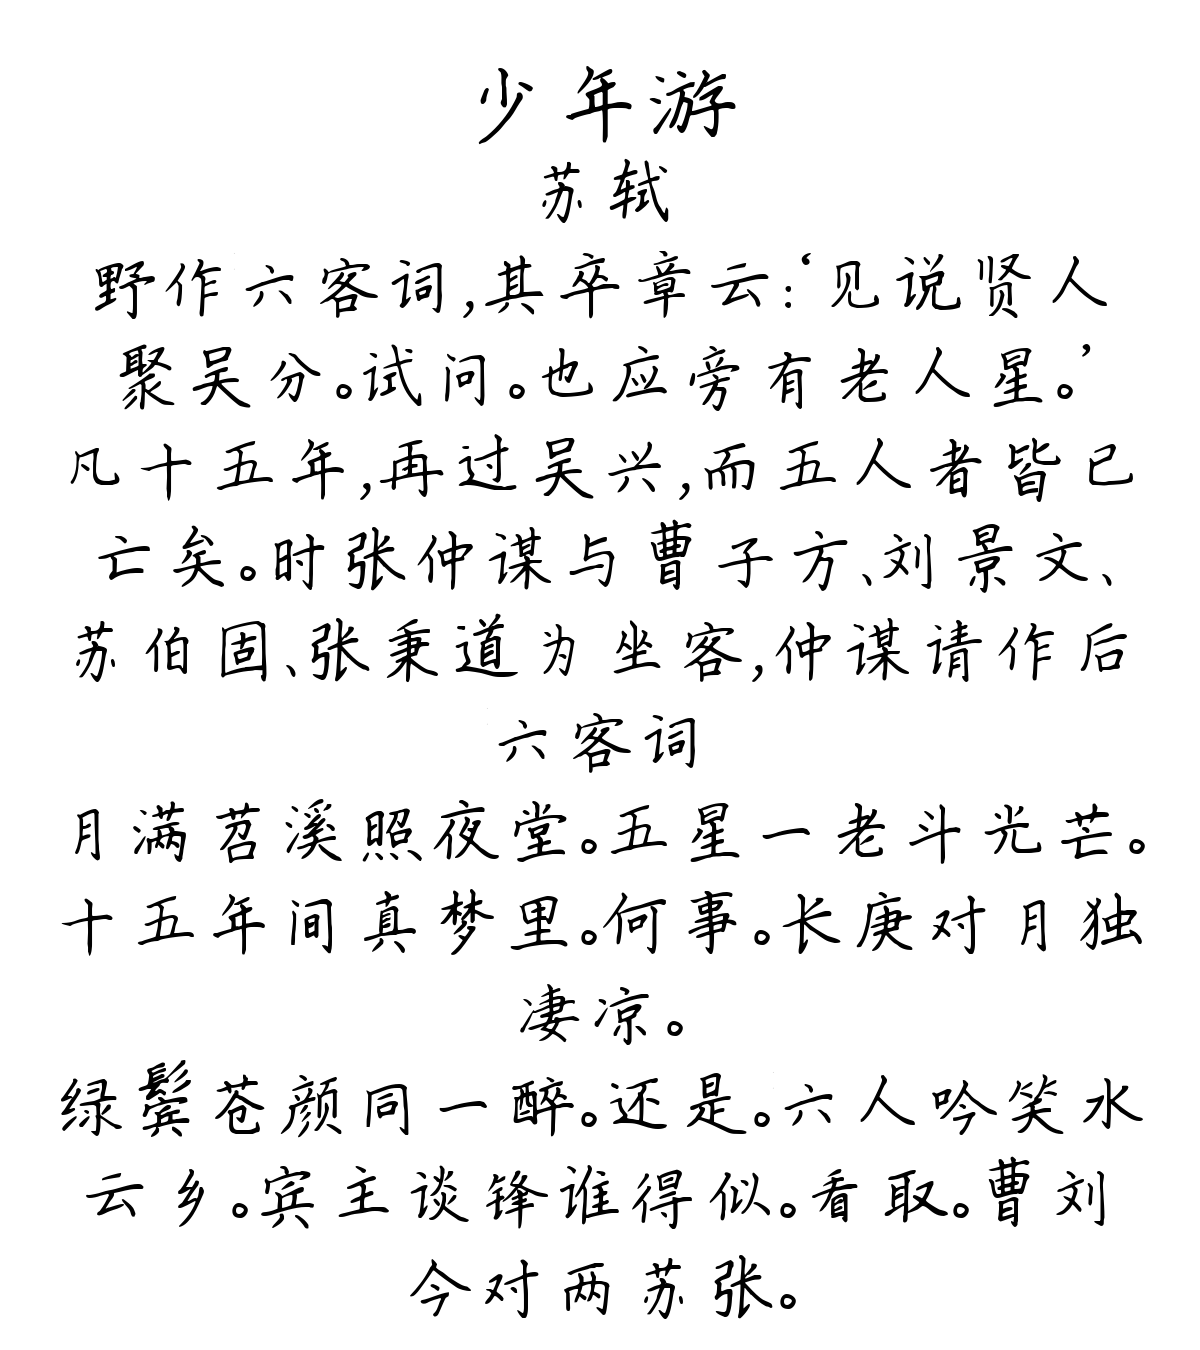 少年游
苏轼
野作六客词,其卒章云:‘见说贤人
聚吴分。试问。也应旁有老人星。’
凡十五年,再过吴兴,而五人者皆已
亡矣。时张仲谋与曹子方、刘景文、
苏伯固、张秉道为坐客,仲谋请作后
六客词
月满苕溪照夜堂。五星一老斗光芒。
十五年间真梦里。何事。长庚对月独
凄凉。
绿鬓苍颜同一醉。还是。六人吟笑水
云乡。宾主谈锋谁得似。看取。曹刘
今对两苏张。